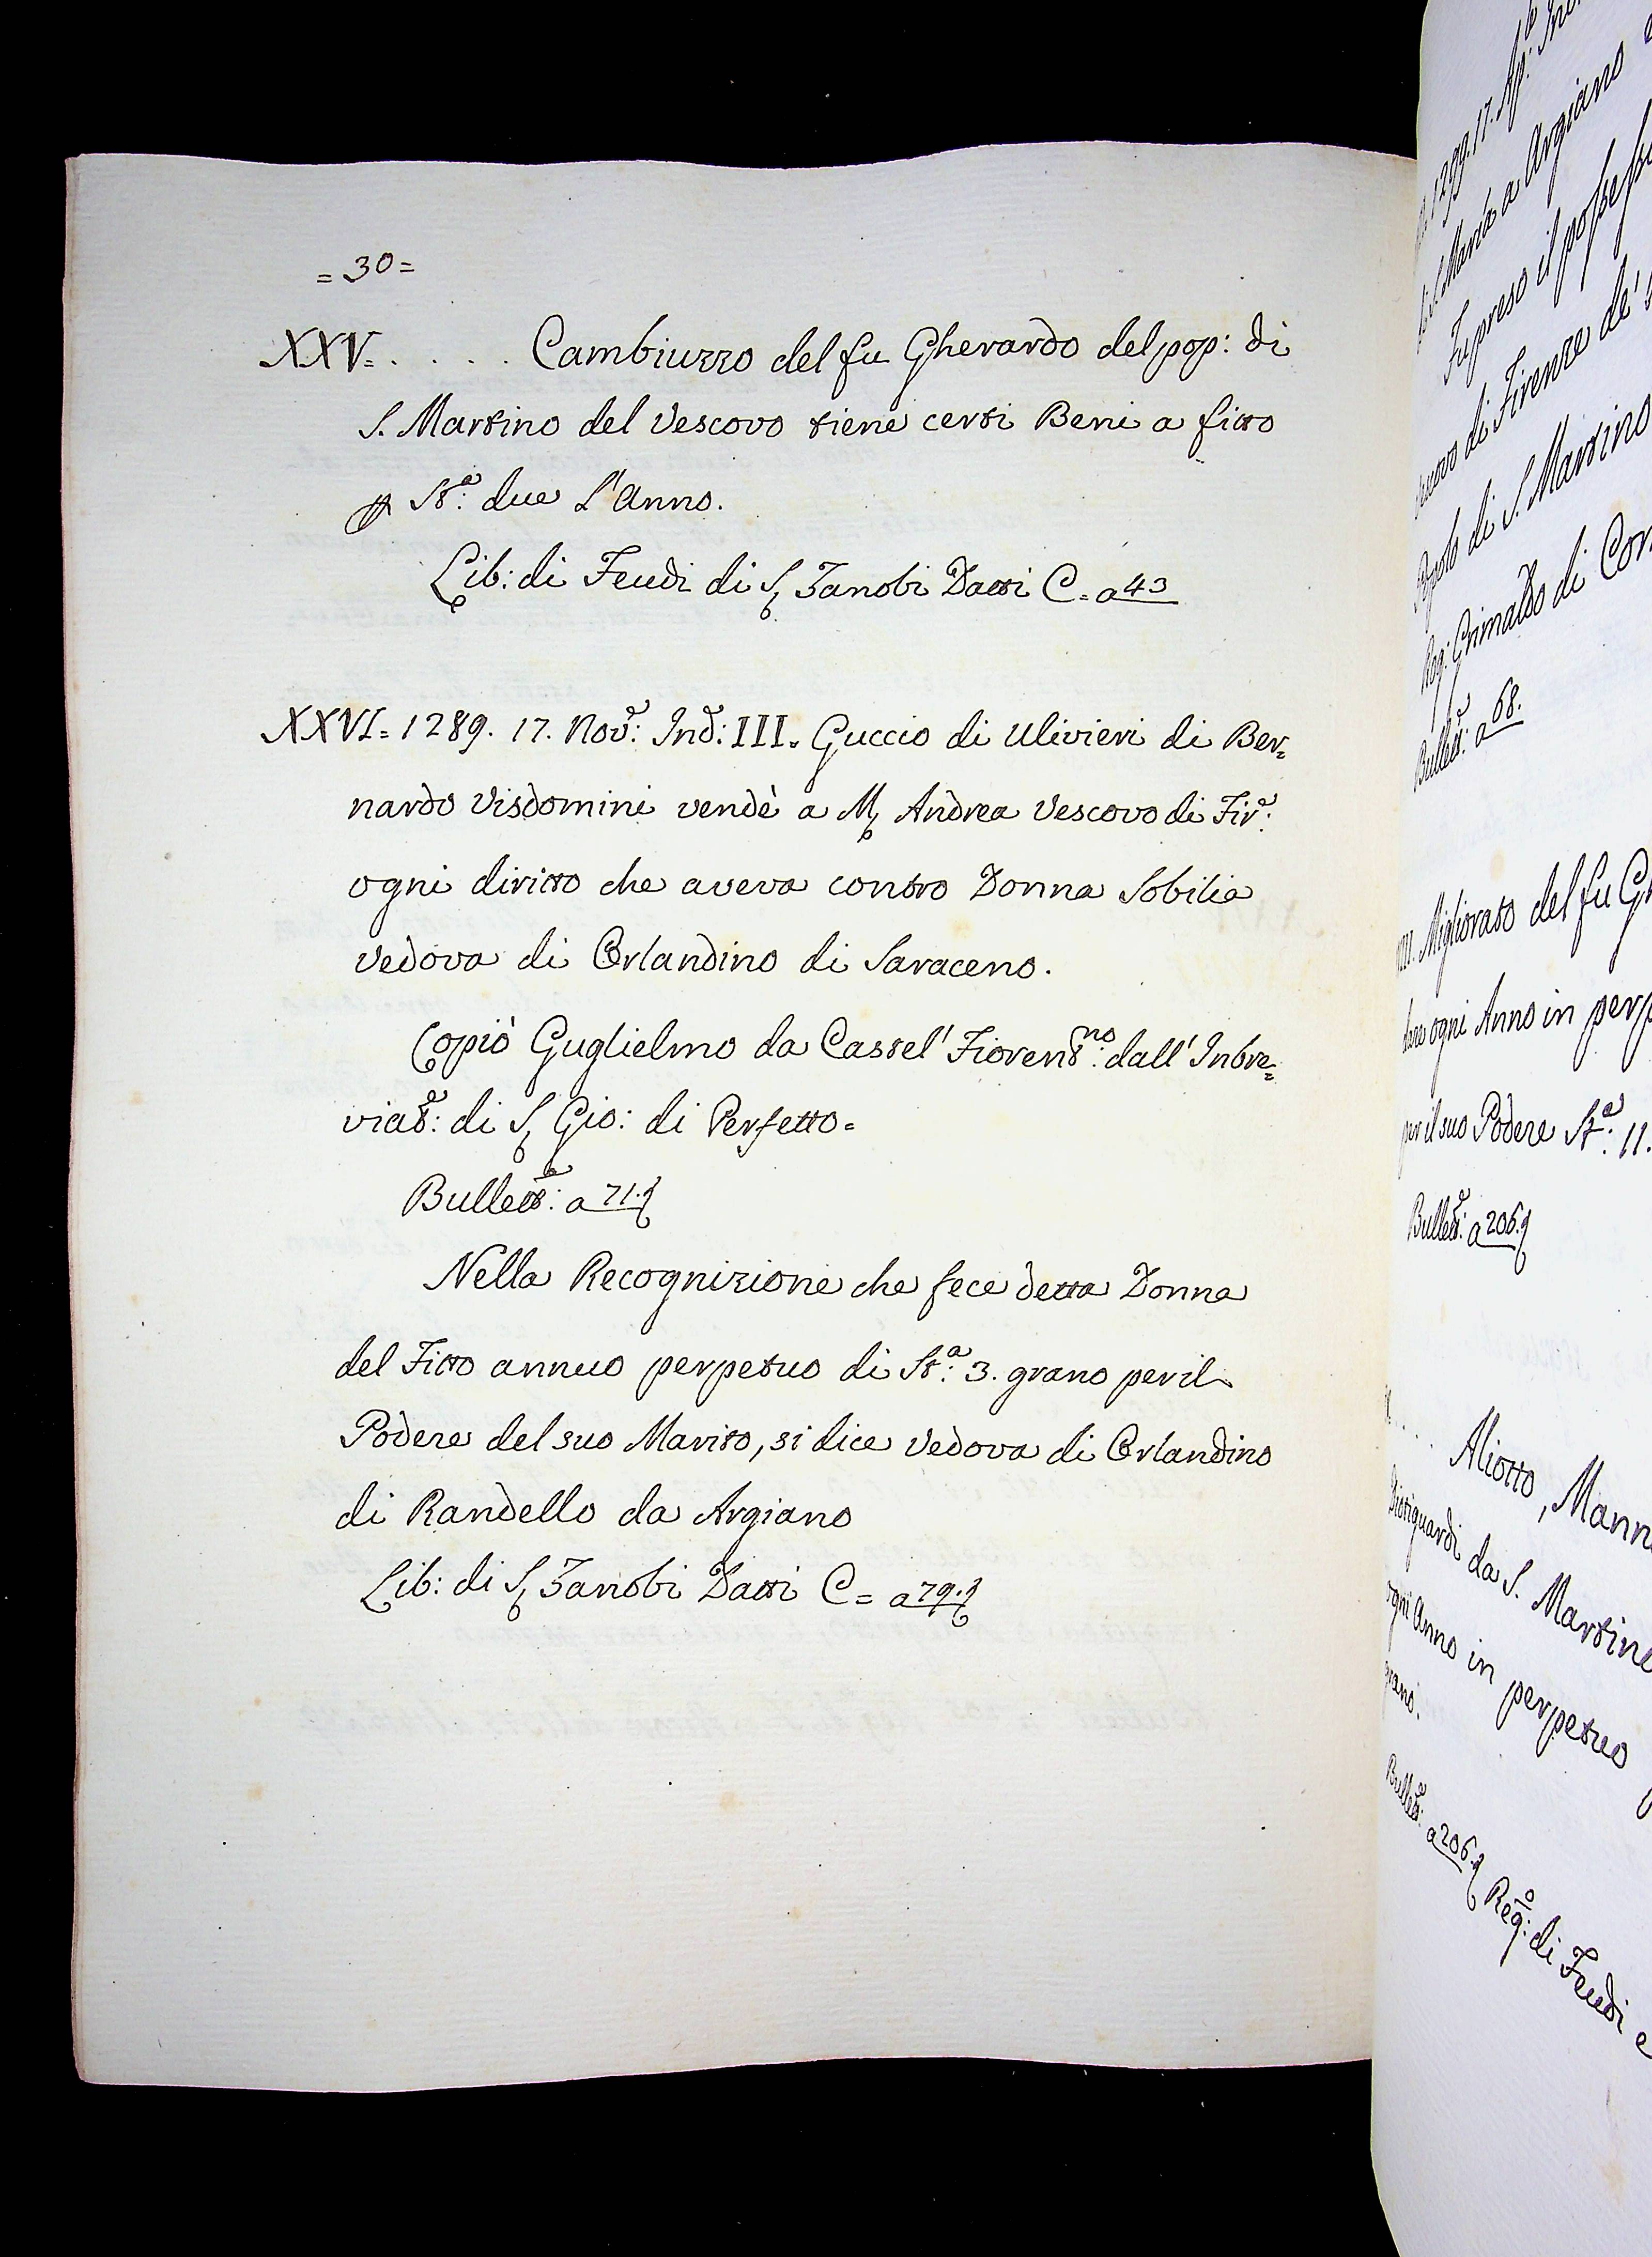 =30=
XXV=. . . . Cambiuzzo del fu Gherardo del pop: di
S. Martino del Vescovo tiene certi Beni a fitto
p Stª: due l'Anno.
Lib: di Feudi di S. Zanobi Datti C= a 43
XXVI= 1289. 17. Nov̅: Ind̅: III. Guccio di Ulivieri di Ber=
nardo Visdomini vendè a M. Andrea Vescovo di Fir̅:
ogni diritto che aveva contro Donna Sobilia
Vedova di Orlandino di Saraceno.
Copiò Guglielmo da Castel' Fiorentⁿᵒ: dall' Inbre=
viatᵉ: di S. Gio: di Perfetto=
Bullettᵉ: a 71.
Nella Recognizione che fece detta Donna
del Fitto annuo perpetuo di Stª: 3. grano per il
Podere del suo Marito, si dice Vedova di Orlandino
di Randello da Argiano
Lib: di S. Zanobi Datti C= a 79.
1299. 17. Ap:
Maria a Argiano
Fu preso il
di Firenze de'
di S. Martino
Reg: Grimaldo di
Bullettᵉ: a 68.
Migliorato del fu
ogni Anno in
per il suo Podere Stª: 11.
Bullettᵉ: a 206.
Aliotto,
da S.
Anno in perpetuo
Bullettᵉ: a 206. Regº: di Feudi